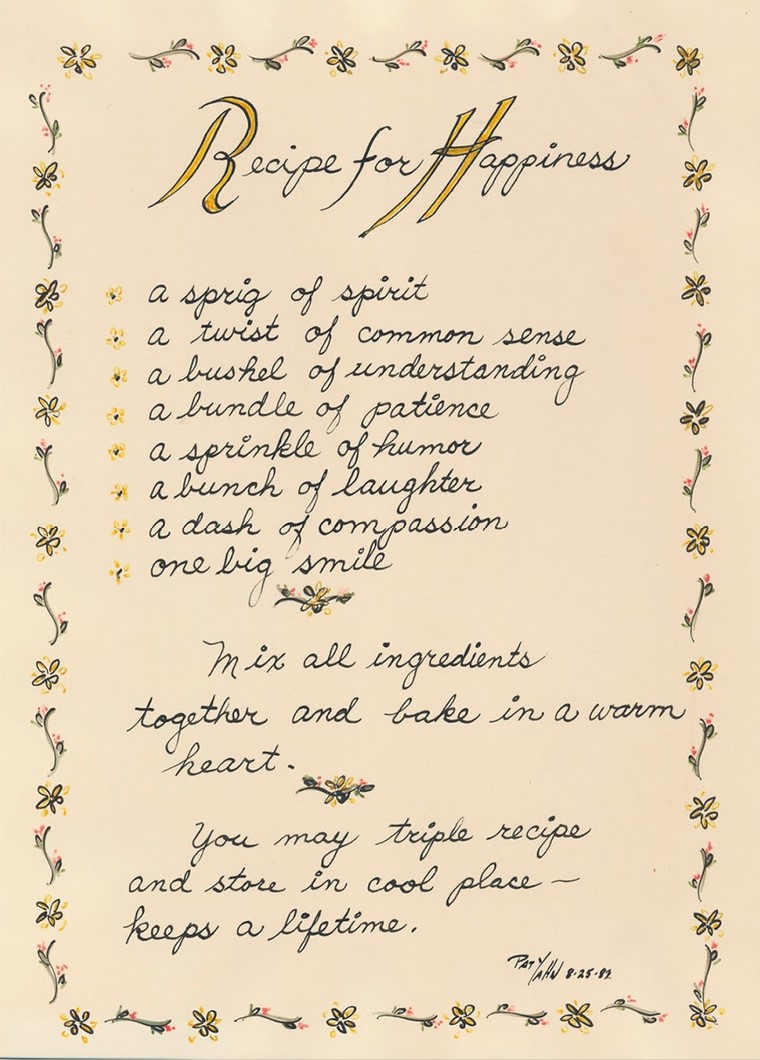 Recipe for Happiness
a sprig of spirit
a twist of common sense
a bushel of understanding
a bundle of patience
a sprinkle of humor
a bunch of laughter
a dash of compassion
one big smile
Mix all ingredients
together and bake in a warm
heart.
You may triple recipe
and store in cool place –
keeps a lifetime.
Pat Hahn